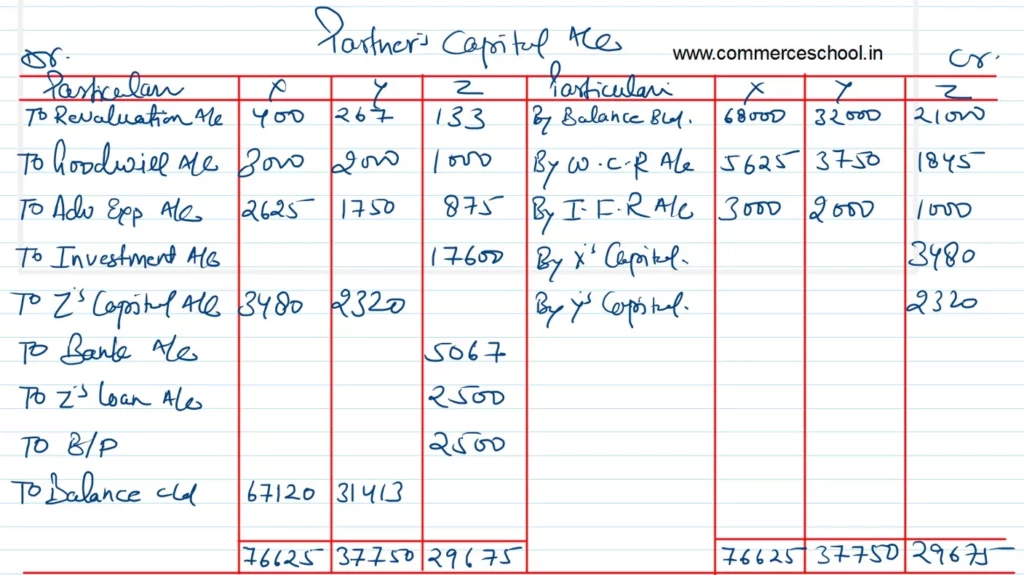 Partner's Capital A/c
www.commerceschool.in
Dr. Cr.
Particulars X Y Z Particulars X Y Z
To Revaluation A/c 400 267 133 By Balance B/d. 68000 32000 21000
To Goodwill A/c 3000 2000 1000 By W.C.R A/c 5625 3750 1845
To Adv Exp A/c 2625 1750 875 By I.F.R A/c 3000 2000 1000
To Investment A/c 17600 By X's Capital. 3480
To Z's Capital A/c 3480 2320 By Y's Capital. 2320
To Bank A/c 5067
To Z's Loan A/c 2500
To B/P 2500
To Balance c/d 67120 31413
76625 37750 29675 76625 37750 29675